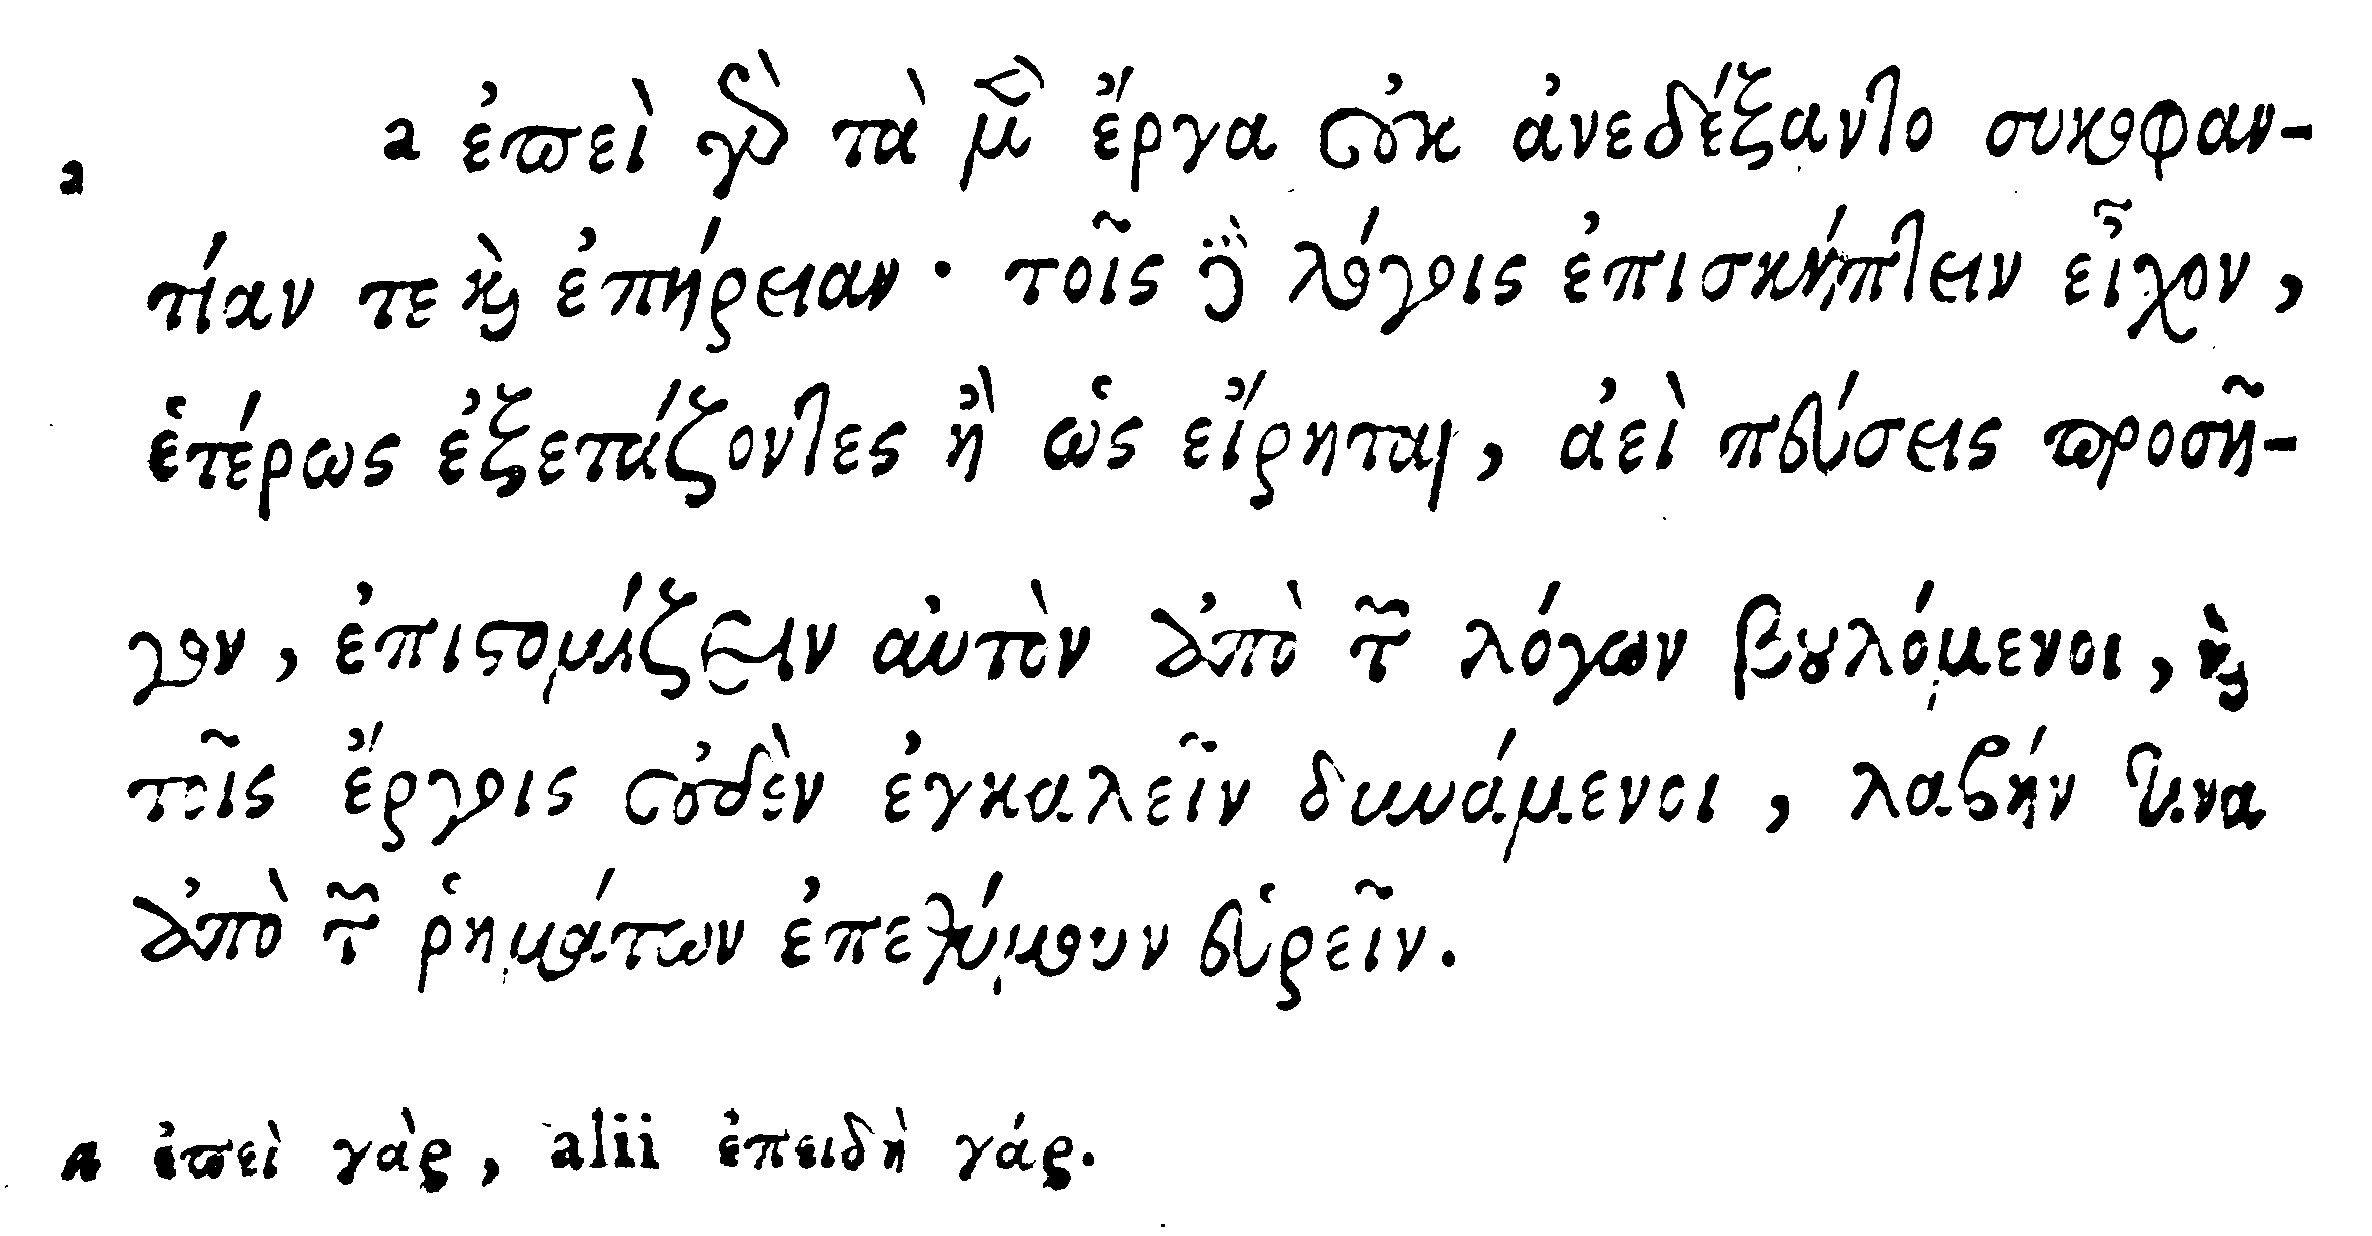 a ἐπεὶ γὰρ τὰ μὲν ἔργα οὐκ ἀνεδέξαντο συκοφαν-
a
τίαν τε καὶ ἐπήρειαν· τοῖς δὲ λόγοις ἐπισκήπτειν εἶχον,
ἑτέρως ἐξετάζοντες ἢ ὡς εἴρηται, ἀεὶ πεύσεις προσῆ-
γον, ἐπιστομίζειν αὐτὸν ἀπὸ τῶν λόγων βουλόμενοι, καὶ
τοῖς ἔργοις οὐδὲν ἐγκαλεῖν δυνάμενοι, λαβήν τινα
ἀπὸ τῶν ῥημάτων ἐπεθύμουν εὑρεῖν.
a ἐπεὶ γὰρ, alii ἐπειδὴ γάρ.